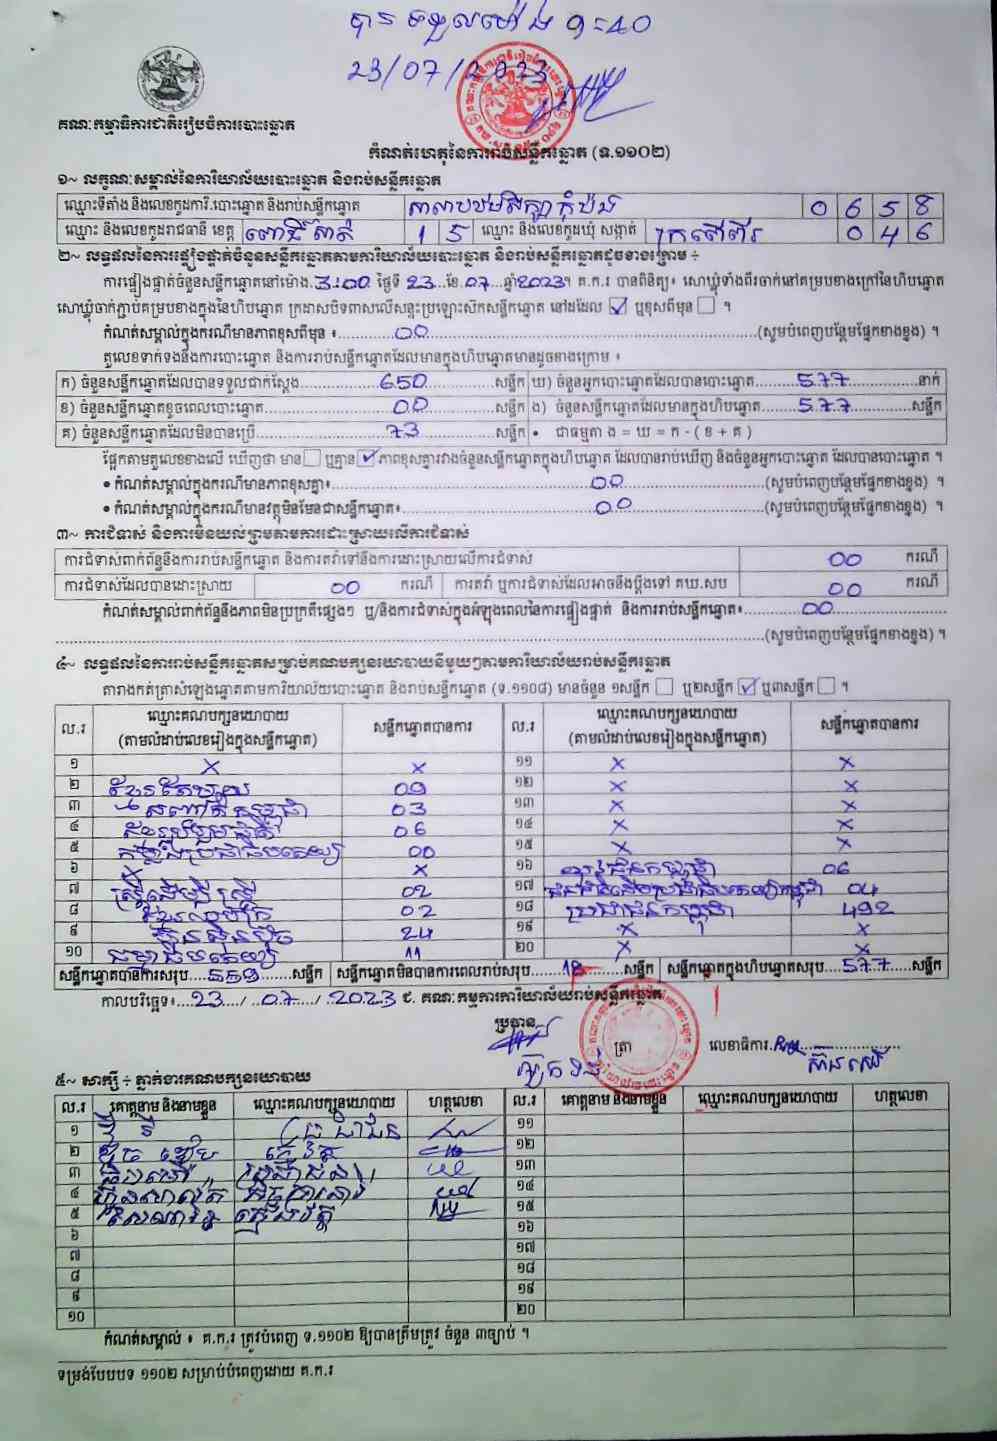 បាន ទទួលម៉ោង 9:40
23/07/2023
គណៈកម្មាធិការជាតិរៀបចំការបោះឆ្នោត
កំណត់ហេតុនៃការរាប់សន្លឹកឆ្នោត (ទ.១១០២)
១~ លក្ខណៈសម្គាល់នៃការិយាល័យបោះឆ្នោត និងរាប់សន្លឹកឆ្នោត
ឈ្មោះទីតាំង និងលេខកូដការិ.បោះឆ្នោត និងរាប់សន្លឹកឆ្នោត 0 6 5 8
ឈ្មោះ និងលេខកូដរាជធានី ខេត្ត ពោធិ៍សាត់ 1 5 ឈ្មោះ និងលេខកូដឃុំ សង្កាត់ 0 4 6
២~ លទ្ធផលនៃការផ្ទៀងផ្ទាត់ចំនួនសន្លឹកឆ្នោតតាមការិយាល័យបោះឆ្នោត និងរាប់សន្លឹកឆ្នោតដូចខាងក្រោម ÷
ការផ្ទៀងផ្ទាត់ចំនួនសន្លឹកឆ្នោតនៅម៉ោង.3:00 ថ្ងៃទី 23 ខែ.07 ឆ្នាំ2023។ គ.ក.រ បានពិនិត្យ៖ សោឃ្លុំទាំងពីរចាក់នៅគម្របខាងក្រៅនៃហិបឆ្នោត
សោឃ្លុំចាក់ភ្ជាប់គម្របខាងក្នុងនៃហិបឆ្នោត ក្រដាសបិទពាសលើសន្ទះប្រឡោះសឹកសន្លឹកឆ្នោត នៅដដែល ☑ ឬខុសពីមុន ☐ ។
កំណត់សម្គាល់ក្នុងករណីមានភាពខុសពីមុន ៖ 00 (សូមបំពេញបន្ថែមផ្នែកខាងខ្នង) ។
តួលេខទាក់ទងនឹងការបោះឆ្នោត និងការរាប់សន្លឹកឆ្នោតដែលមានក្នុងហិបឆ្នោតមានដូចខាងក្រោម ៖
ក) ចំនួនសន្លឹកឆ្នោតដែលបានទទួលជាក់ស្ដែង 650 សន្លឹក ឃ) ចំនួនអ្នកបោះឆ្នោតដែលបានបោះឆ្នោត 577 នាក់
ខ) ចំនួនសន្លឹកឆ្នោតខូចពេលបោះឆ្នោត 00 សន្លឹក ង) ចំនួនសន្លឹកឆ្នោតដែលមានក្នុងហិបឆ្នោត 577 សន្លឹក
គ) ចំនួនសន្លឹកឆ្នោតដែលមិនបានប្រើ 73 សន្លឹក • ជាធម្មតា ង = ឃ = ក - ( ខ + គ )
ផ្អែកតាមតួលេខខាងលើ ឃើញថា មាន ☐ ឬគ្មាន ☑ ភាពខុសគ្នារវាងចំនួនសន្លឹកឆ្នោតក្នុងហិបឆ្នោត ដែលបានរាប់ឃើញ និងចំនួនអ្នកបោះឆ្នោត ដែលបានបោះឆ្នោត ។
• កំណត់សម្គាល់ក្នុងករណីមានភាពខុសគ្នា៖ 00 (សូមបំពេញបន្ថែមផ្នែកខាងខ្នង) ។
• កំណត់សម្គាល់ក្នុងករណីមានវត្ថុមិនមែនជាសន្លឹកឆ្នោត៖ 00 (សូមបំពេញបន្ថែមផ្នែកខាងខ្នង) ។
៣~ ការជំទាស់ និងការមិនយល់ព្រមតាមការដោះស្រាយលើការជំទាស់
ការជំទាស់ពាក់ព័ន្ធនឹងការរាប់សន្លឹកឆ្នោត និងការតវ៉ាទៅនឹងការដោះស្រាយលើការជំទាស់ 00 ករណី
ការជំទាស់ដែលបានដោះស្រាយ 00 ករណី ការតវ៉ា ឬការជំទាស់ដែលអាចនឹងប្ដឹងទៅ គឃ.សប 00 ករណី
កំណត់សម្គាល់ពាក់ព័ន្ធនឹងភាពមិនប្រក្រតីផ្សេងៗ ឬ/និងការជំទាស់ក្នុងអំឡុងពេលនៃការផ្ទៀងផ្ទាត់ និងការរាប់សន្លឹកឆ្នោត៖ 00
(សូមបំពេញបន្ថែមផ្នែកខាងខ្នង) ។
៤~ លទ្ធផលនៃការរាប់សន្លឹកឆ្នោតសម្រាប់គណបក្សនយោបាយនីមួយៗតាមការិយាល័យរាប់សន្លឹកឆ្នោត
តារាងកត់ត្រាសំឡេងឆ្នោតតាមការិយាល័យបោះឆ្នោត និងរាប់សន្លឹកឆ្នោត (ទ.១១០៨) មានចំនួន ១សន្លឹក ☐ ឬ២សន្លឹក ☑ ឬ៣សន្លឹក ☐ ។
ល.រ ឈ្មោះគណបក្សនយោបាយ សន្លឹកឆ្នោតបានការ ល.រ ឈ្មោះគណបក្សនយោបាយ សន្លឹកឆ្នោតបានការ
(តាមលំដាប់លេខរៀងក្នុងសន្លឹកឆ្នោត) (តាមលំដាប់លេខរៀងក្នុងសន្លឹកឆ្នោត)
១ x x ១១ x x
២ ខ្មែរតែមួយ 09 ១២ x x
៣ 03 ១៣ x x
៤ 06 ១៤ x x
៥ 00 ១៥ x x
៦ x x ១៦ 06
៧ ស្ត្រីដើម្បីស្ត្រី 02 ១៧ 04
៨ 02 ១៨ ប្រជាជនកម្ពុជា 492
៩ ហ៊្វុនស៊ិនប៉ិច 24 ១៩ x x
១០ ធម្មាធិបតេយ្យ 11 ២០ x x
សន្លឹកឆ្នោតបានការសរុប 559 សន្លឹក សន្លឹកឆ្នោតមិនបានការពេលរាប់សរុប 18 សន្លឹក សន្លឹកឆ្នោតក្នុងហិបឆ្នោតសរុប 577 សន្លឹក
កាលបរិច្ឆេទ៖ 23 / 07 / 2023 ជ. គណៈកម្មការការិយាល័យរាប់សន្លឹកឆ្នោត
ប្រធាន ត្រា លេខាធិការ
៥~ សាក្សី ÷ ភ្នាក់ងារគណបក្សនយោបាយ
ល.រ គោត្តនាម និងនាមខ្លួន ឈ្មោះគណបក្សនយោបាយ ហត្ថលេខា ល.រ គោត្តនាម និងនាមខ្លួន ឈ្មោះគណបក្សនយោបាយ ហត្ថលេខា
១ ប្រជាជន ១១
២ ១២
៣ ប្រជាជន ១៣
៤ ១៤
៥ ១៥
៦ ១៦
៧ ១៧
៨ ១៨
៩ ១៩
១០ ២០
កំណត់សម្គាល់ ៖ គ.ក.រ ត្រូវបំពេញ ទ.១១០២ ឱ្យបានត្រឹមត្រូវ ចំនួន ៣ច្បាប់ ។
ទម្រង់បែបបទ ១១០២ សម្រាប់បំពេញដោយ គ.ក.រ